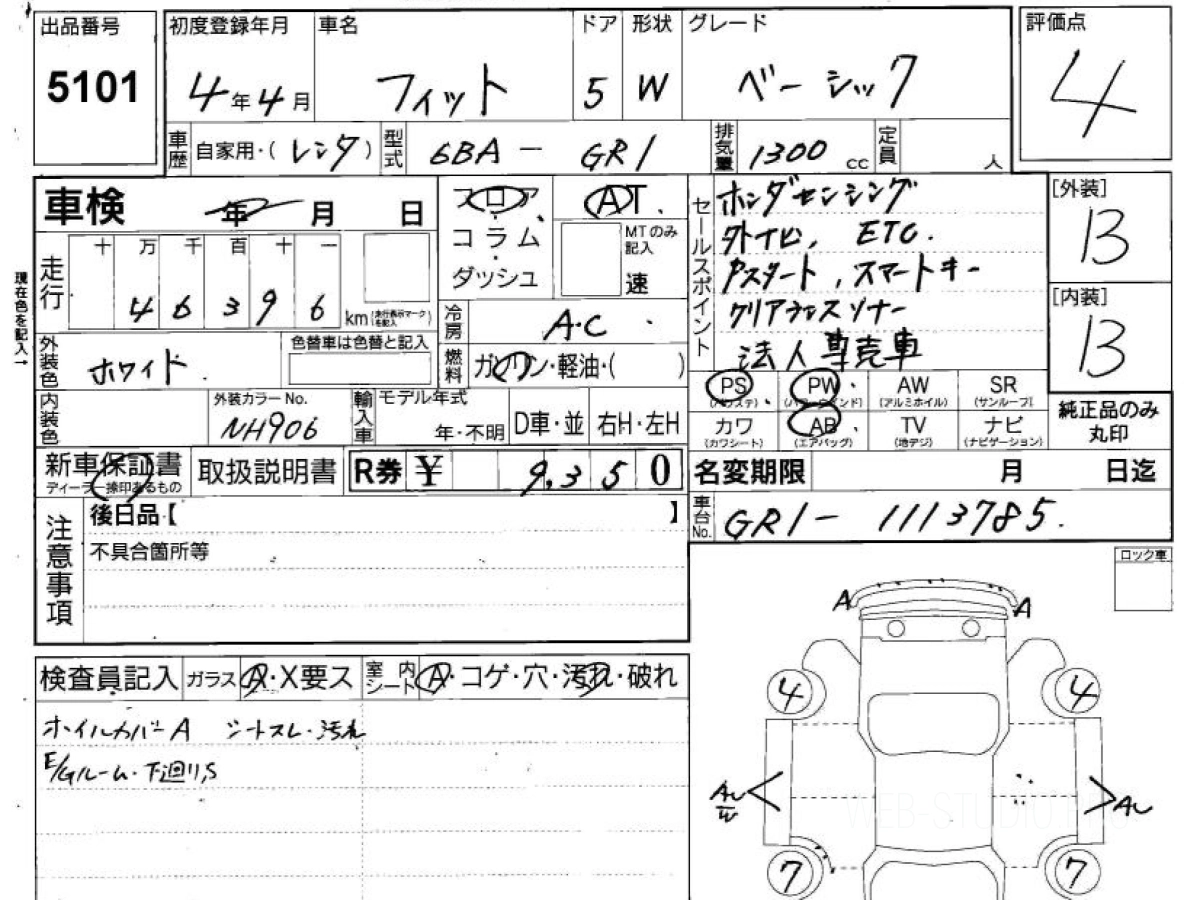 出品番号 初度登録年月 車名 ドア 形状 グレード 評価点
5101 4年4月 フィット 5 W ベーシック 4
車歴 自家用・(レンタ) 型式 6BA - GR1 排気量 1300cc 定員 人
車検 年 月 日 フロア AT. セールスポイント ホンダセンシング [外装]
コラム MTのみ記入 外イヒ, ETC. B
走行 十万千百十一 ダッシュ 速 Pスタート, スマートキー
現在色を記入→ 46396 km (走行表示マークを記入) 冷房 A・C クリアランスソナー [内装]
外装色 ホワイト. 色替車は色替と記入 燃料 ガソリン・軽油・( ) 法人専売車 B
内装色 外装カラーNo. NH906 輸入車 モデル年式 年・不明 D車・並 右H・左H
PS (パワステ) PW (パワーウインド) AW (アルミホイル) SR (サンルーフ) 純正品のみ丸印
カワ (カワシート) AB (エアバッグ) TV (地デジ) ナビ (ナビゲーション)
新車保証書 ディーラー捺印あるもの 取扱説明書 R券 ¥ 9,350 名変期限 月 日迄
注意事項 後日品【 】 車台No. GR1- 1113785.
不具合箇所等
ロック車
A A
検査員記入 ガラス A・X要ス 室内シート A・コゲ・穴・汚れ・破れ
4 4
ホイルカバーA シートスレ・汚れ
E/Gルーム・下廻り,S
AU
W AU
WEB-STUDIO
7 7